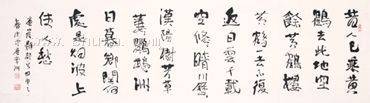 昔人已乘黃
鶴去此地空
餘黃鶴樓
黃鶴一去不復
返白雲千載
空悠々晴川歷々
漢陽樹芳草
萋々鸚鵡洲
日暮鄉關何
處是煙波上
使人愁